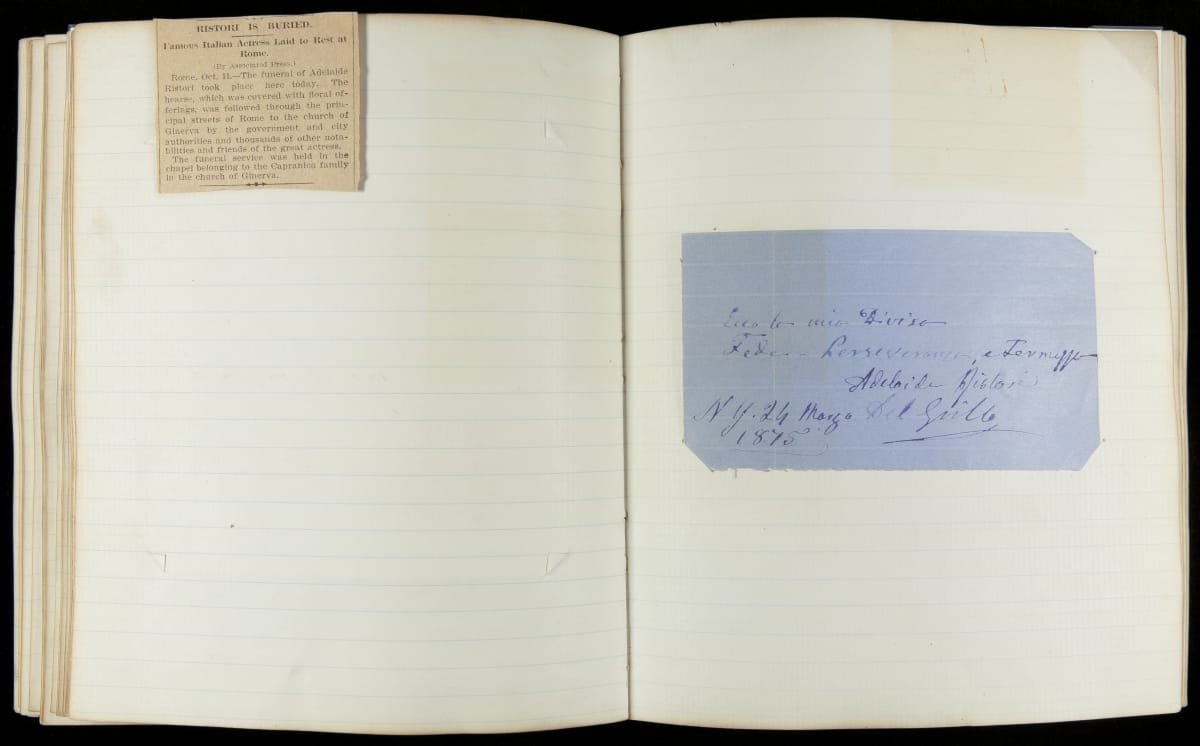 RISTORI IS BURIED.
Famous Italian Actress Laid to Rest at
Rome.
(By Associated Press.)
Rome, Oct. 11.—The funeral of Adelaide
Ristori took place here today. The
hearse, which was covered with floral of-
ferings, was followed through the prin-
cipal streets of Rome to the church of
Ginerva by the government and city
authorities and thousands of other nota-
bilities and friends of the great actress.
The funeral service was held in the
chapel belonging to the Capranica family
in the church of Ginerva.
Ecco la mia Divisa
Fede - Perseveranza, e Fermezza
Adelaide Ristori
N Y. 24 Marzo Del Grillo
1875